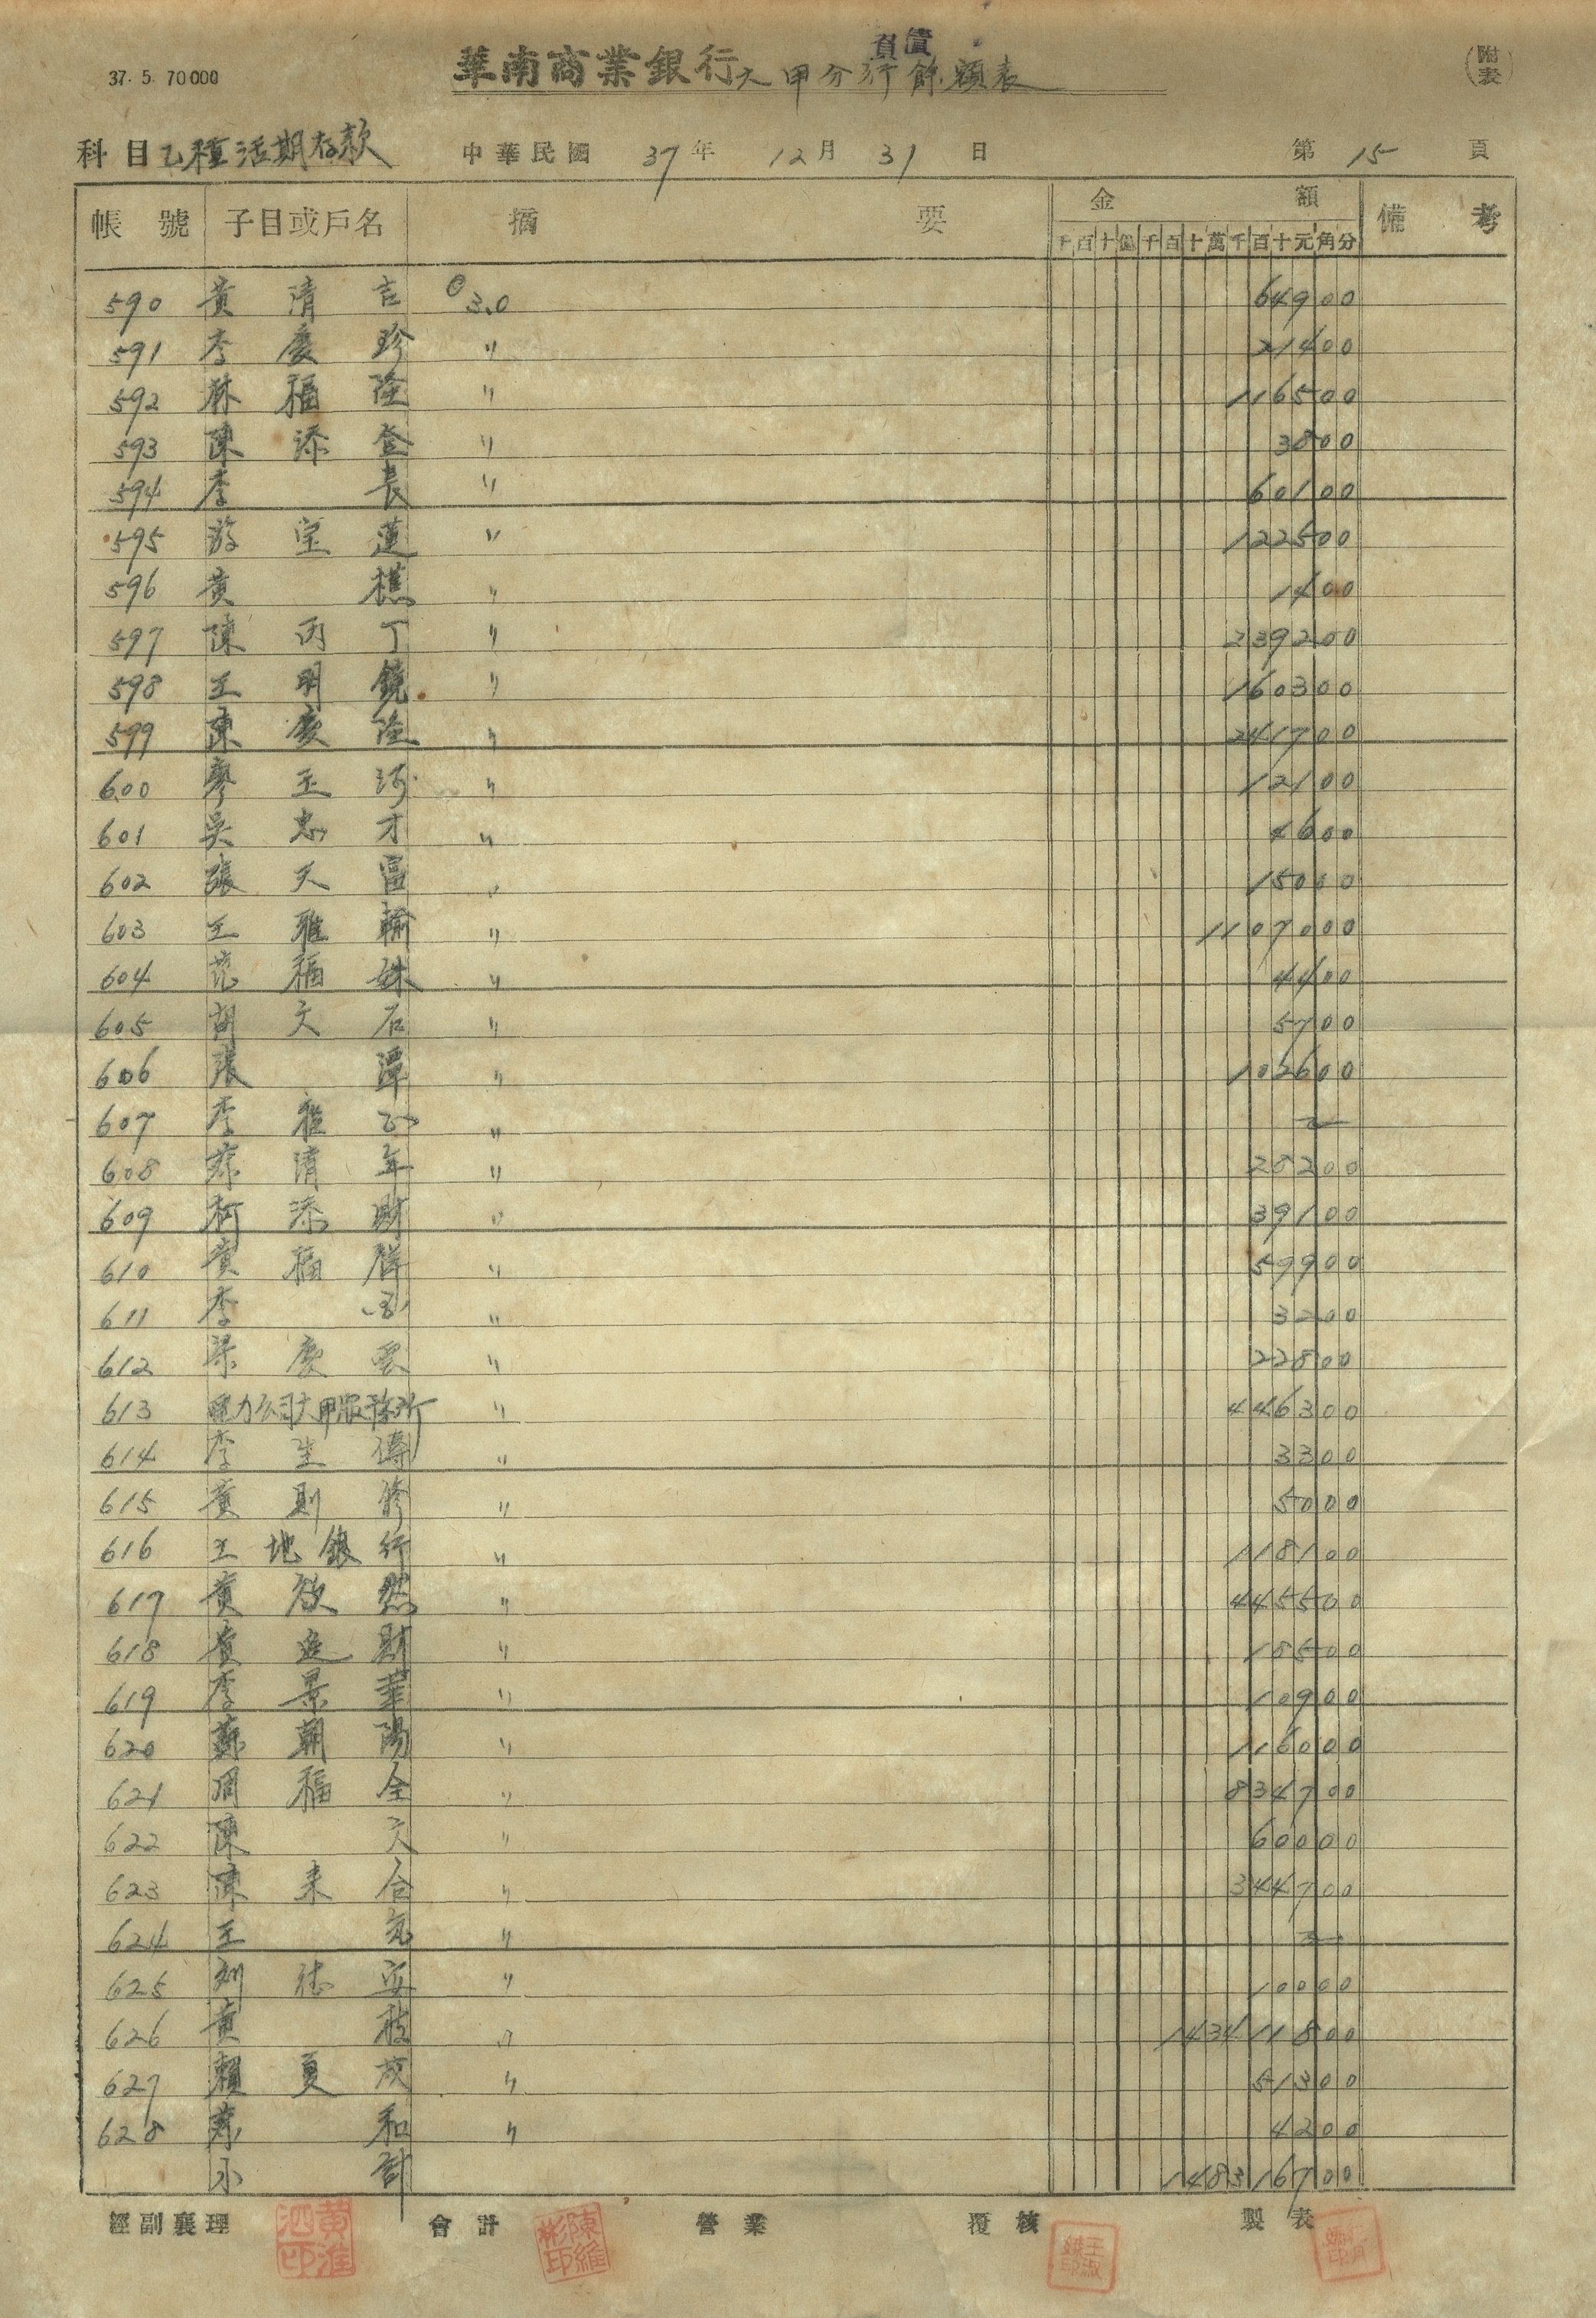 37. 5. 70000
華南商業銀行大甲分行負債餘額表
(附表)
科目乙種活期存款 中華民國 37年 12月 31日 第 15 頁
帳號 子目或戶名 摘要 金額 備考
千百十億千百十萬千百十元角分
590 黃清吉 @3.0 649 00
591 李慶珍 〃 214 00
592 林福隆 〃 1165 00
593 陳添登 〃 38 00
594 李長 〃 601 00
595 游宝蓮 〃 1225 00
596 黃樵 〃 14 00
597 陳丙丁 〃 2392 00
598 王明鏡 〃 1603 00
599 陳慶隆 〃 2417 00
600 廖玉河 〃 121 00
601 吳忠才 〃 46 00
602 張天富 〃 150 00
603 王雅輸 〃 11070 00
604 范福妹 〃 44 00
605 胡天石 〃 57 00
606 張潭 〃 1026 00
607 李雅 〃
608 蔡清年 〃 282 00
609 柯添財 〃 391 00
610 黃福 〃 599 00
611 李 〃 32 00
612 梁慶雲 〃 228 00
613 電力公司大甲服務所 〃 4463 00
614 李生傳 〃 33 00
615 黃則修 〃 50 00
616 土地銀行 〃 1181 00
617 黃啟然 〃 4455 00
618 黃進財 〃 185 00
619 李景華 〃 109 00
620 蘇朝陽 〃 1160 00
621 周福全 〃 8347 00
622 陳天 〃 600 00
623 陳来合 〃 3447 00
624 王氣 〃
625 刘德安 〃 100 00
626 黃枝 〃 1434118 00
627 賴夏成 〃 513 00
628 蔡和 〃 42 00
小計 1483167 00
經副襄理 會計 營業 覆核 製表
黃淮泗印 陳維彬印